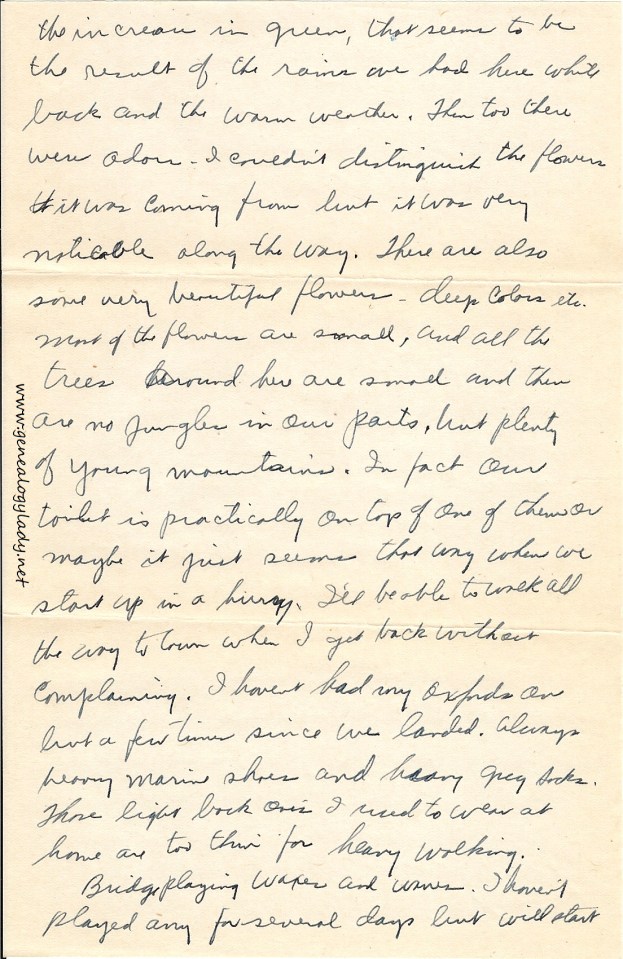 the increase in green, that seems to be
the result of the rains we had here while
back and the warm weather. Then too there
were odors - I couldn't distinguish the flowers
it was coming from but it was very
noticable along the way. There are also
some very beautiful flowers - deep colors etc.
most of the flowers are small, and all the
trees around here are small and there
are no jungles in our parts, but plenty
of young mountains. In fact our
toilet is practically on top of one of them or
maybe it just seems that way when we
start up in a hurry. I'll be able to walk all
the way to town when I get back without
complaining. I haven't had my oxfords on
but a few times since we landed. Always
heavy marine shoes and heavy grey socks.
Those light back ones I used to wear at
home are too thin for heavy walking.
Bridge playing waxes and wanes. I haven't
played any for several days but will start
www.genealogylady.net